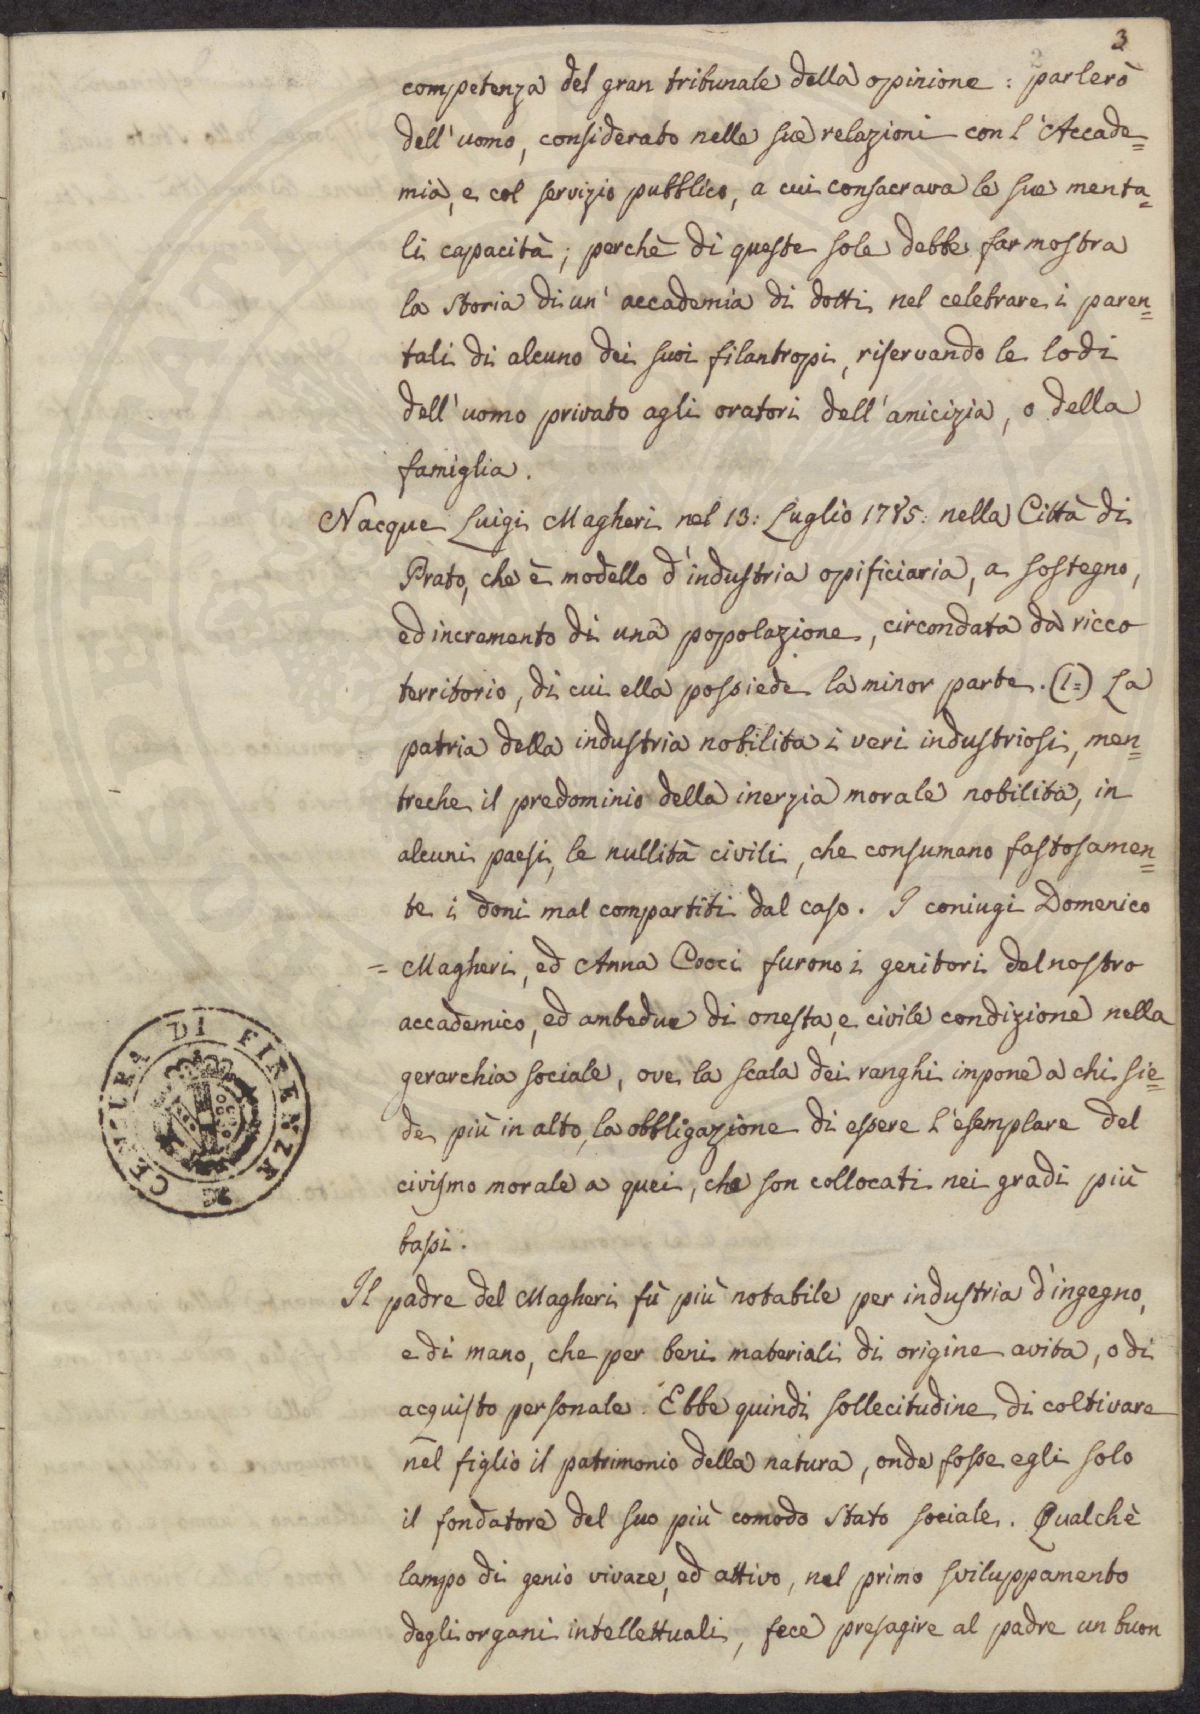 3
competenza del gran tribunale della opinione: parlerò
dell'uomo, considerato nelle sue relazioni con l'Accade=
mia, e col servizio pubblico, a cui consacrava le sue menta=
li capacità; perchè di queste sole debbe far mostra
la storia di un' accademia di dotti nel celebrare i paren=
tali di alcuno dei suoi filantropi, riservando le lodi
dell'uomo privato agli oratori dell'amicizia, o della
famiglia.
Nacque Luigi Magheri nel 13: Luglio 1785: nella Città di
Prato, che è modello d'industria opificiaria, a sostegno,
ed incremento di una popolazione, circondata da ricco
territorio, di cui ella possiede la minor parte. (1=) La
patria della industria nobilita i veri industriosi, men=
treche il predominio della inerzia morale nobilita, in
alcuni paesi, le nullità civili, che consumano fastosamen=
te i doni mal compartiti dal caso. I coniugi Domenico
= Magheri, ed Anna Cocci furono i genitori del nostro
accademico, ed ambedue di onesta, e civile condizione nella
gerarchia sociale, ove la scala dei ranghi impone a chi sie=
de più in alto, la obbligazione di essere l'esemplare del
civismo morale a quei, che son collocati nei gradi più
bassi.
Il padre del Magheri fù più notabile per industria d'ingegno,
e di mano, che per beni materiali di origine avita, o di
acquisto personale. Ebbe quindi sollecitudine di coltivare
nel figlio il patrimonio della natura, onde fosse egli solo
il fondatore del suo più comodo stato sociale. Qualchè
lampo di genio vivace, ed attivo, nel primo sviluppamento
degli organi intellettuali, fece presagire al padre un buon
CENTRALE DI FIRENZE